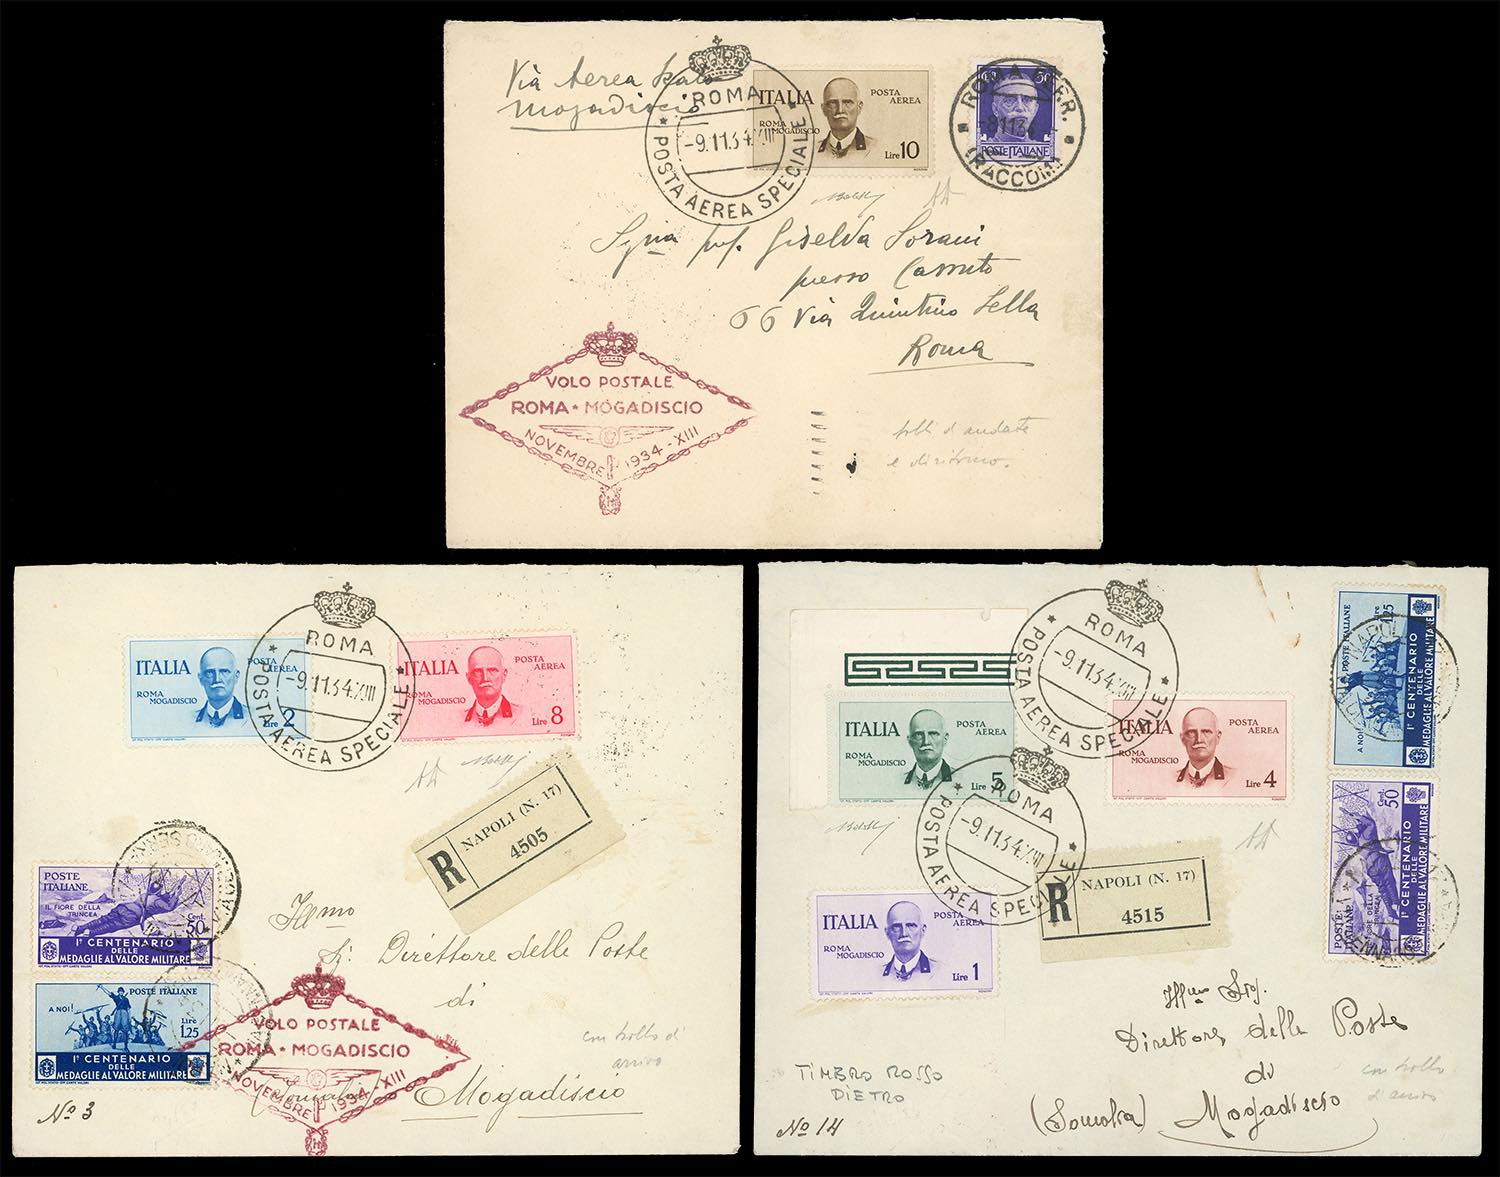 Via Aerea
Mogadiscio
ROMA
-9.11.34.XIII
* POSTA AEREA SPECIALE *
ITALIA
POSTA AEREA
ROMA MOGADISCIO
Lire 10
50
POSTE ITALIANE
ROMA FERR.
-8 11 34
(RACCOM)
Giselda Sorani
presso Cassuto
66 Via Quintino Sella
Roma
VOLO POSTALE
ROMA * MOGADISCIO
NOVEMBRE 1934 - XIII
bolli d'andata
e di ritorno.
ROMA
-9.11.34.XIII
* POSTA AEREA SPECIALE *
ITALIA
POSTA AEREA
ROMA MOGADISCIO
Lire 2
ITALIA
POSTA AEREA
ROMA MOGADISCIO
Lire 8
R
NAPOLI (N. 17)
4505
POSTE ITALIANE
IL FIORE DELLA TRINCEA
Cent. 50
Iº CENTENARIO
DELLE
MEDAGLIE AL VALORE MILITARE
POSTE ITALIANE
A NOI!
Lire 1,25
Iº CENTENARIO
DELLE
MEDAGLIE AL VALORE MILITARE
Direttore delle Poste
di
Mogadiscio
VOLO POSTALE
ROMA * MOGADISCIO
NOVEMBRE 1934 - XIII
controllo d'
arrivo
Nº 3
ROMA
-9.11.34.XIII
* POSTA AEREA SPECIALE *
ITALIA
POSTA AEREA
ROMA MOGADISCIO
Lire 5
ITALIA
POSTA AEREA
ROMA MOGADISCIO
Lire 4
ROMA
-9.11.34.XIII
* POSTA AEREA SPECIALE *
ITALIA
POSTA AEREA
ROMA MOGADISCIO
Lire 1
R
NAPOLI (N. 17)
4515
POSTE ITALIANE
Lire 1,25
A NOI!
Iº CENTENARIO
DELLE
MEDAGLIE AL VALORE MILITARE
POSTE ITALIANE
Cent. 50
IL FIORE DELLA TRINCEA
Iº CENTENARIO
DELLE
MEDAGLIE AL VALORE MILITARE
Direttore delle Poste
di
(Somalia) Mogadiscio
TIMBRO ROSSO
DIETRO
controllo
d'arrivo
Nº 14